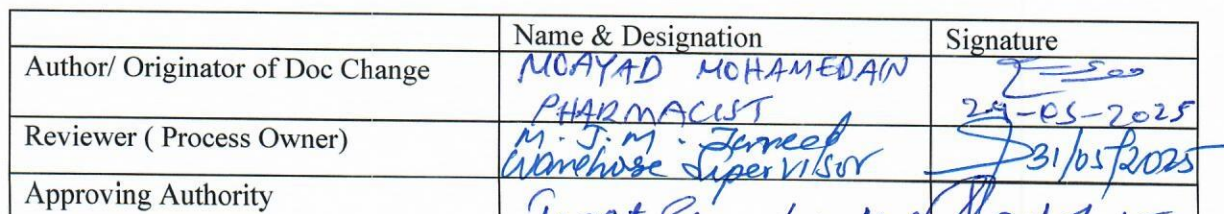 Name & Designation Signature
Author/ Originator of Doc Change MOAYAD MOHAMEDAIN
PHARMACIST 29-05-2025
Reviewer ( Process Owner) M.J.M. Jameel
Warehose Supervisor 31/05/2025
Approving Authority